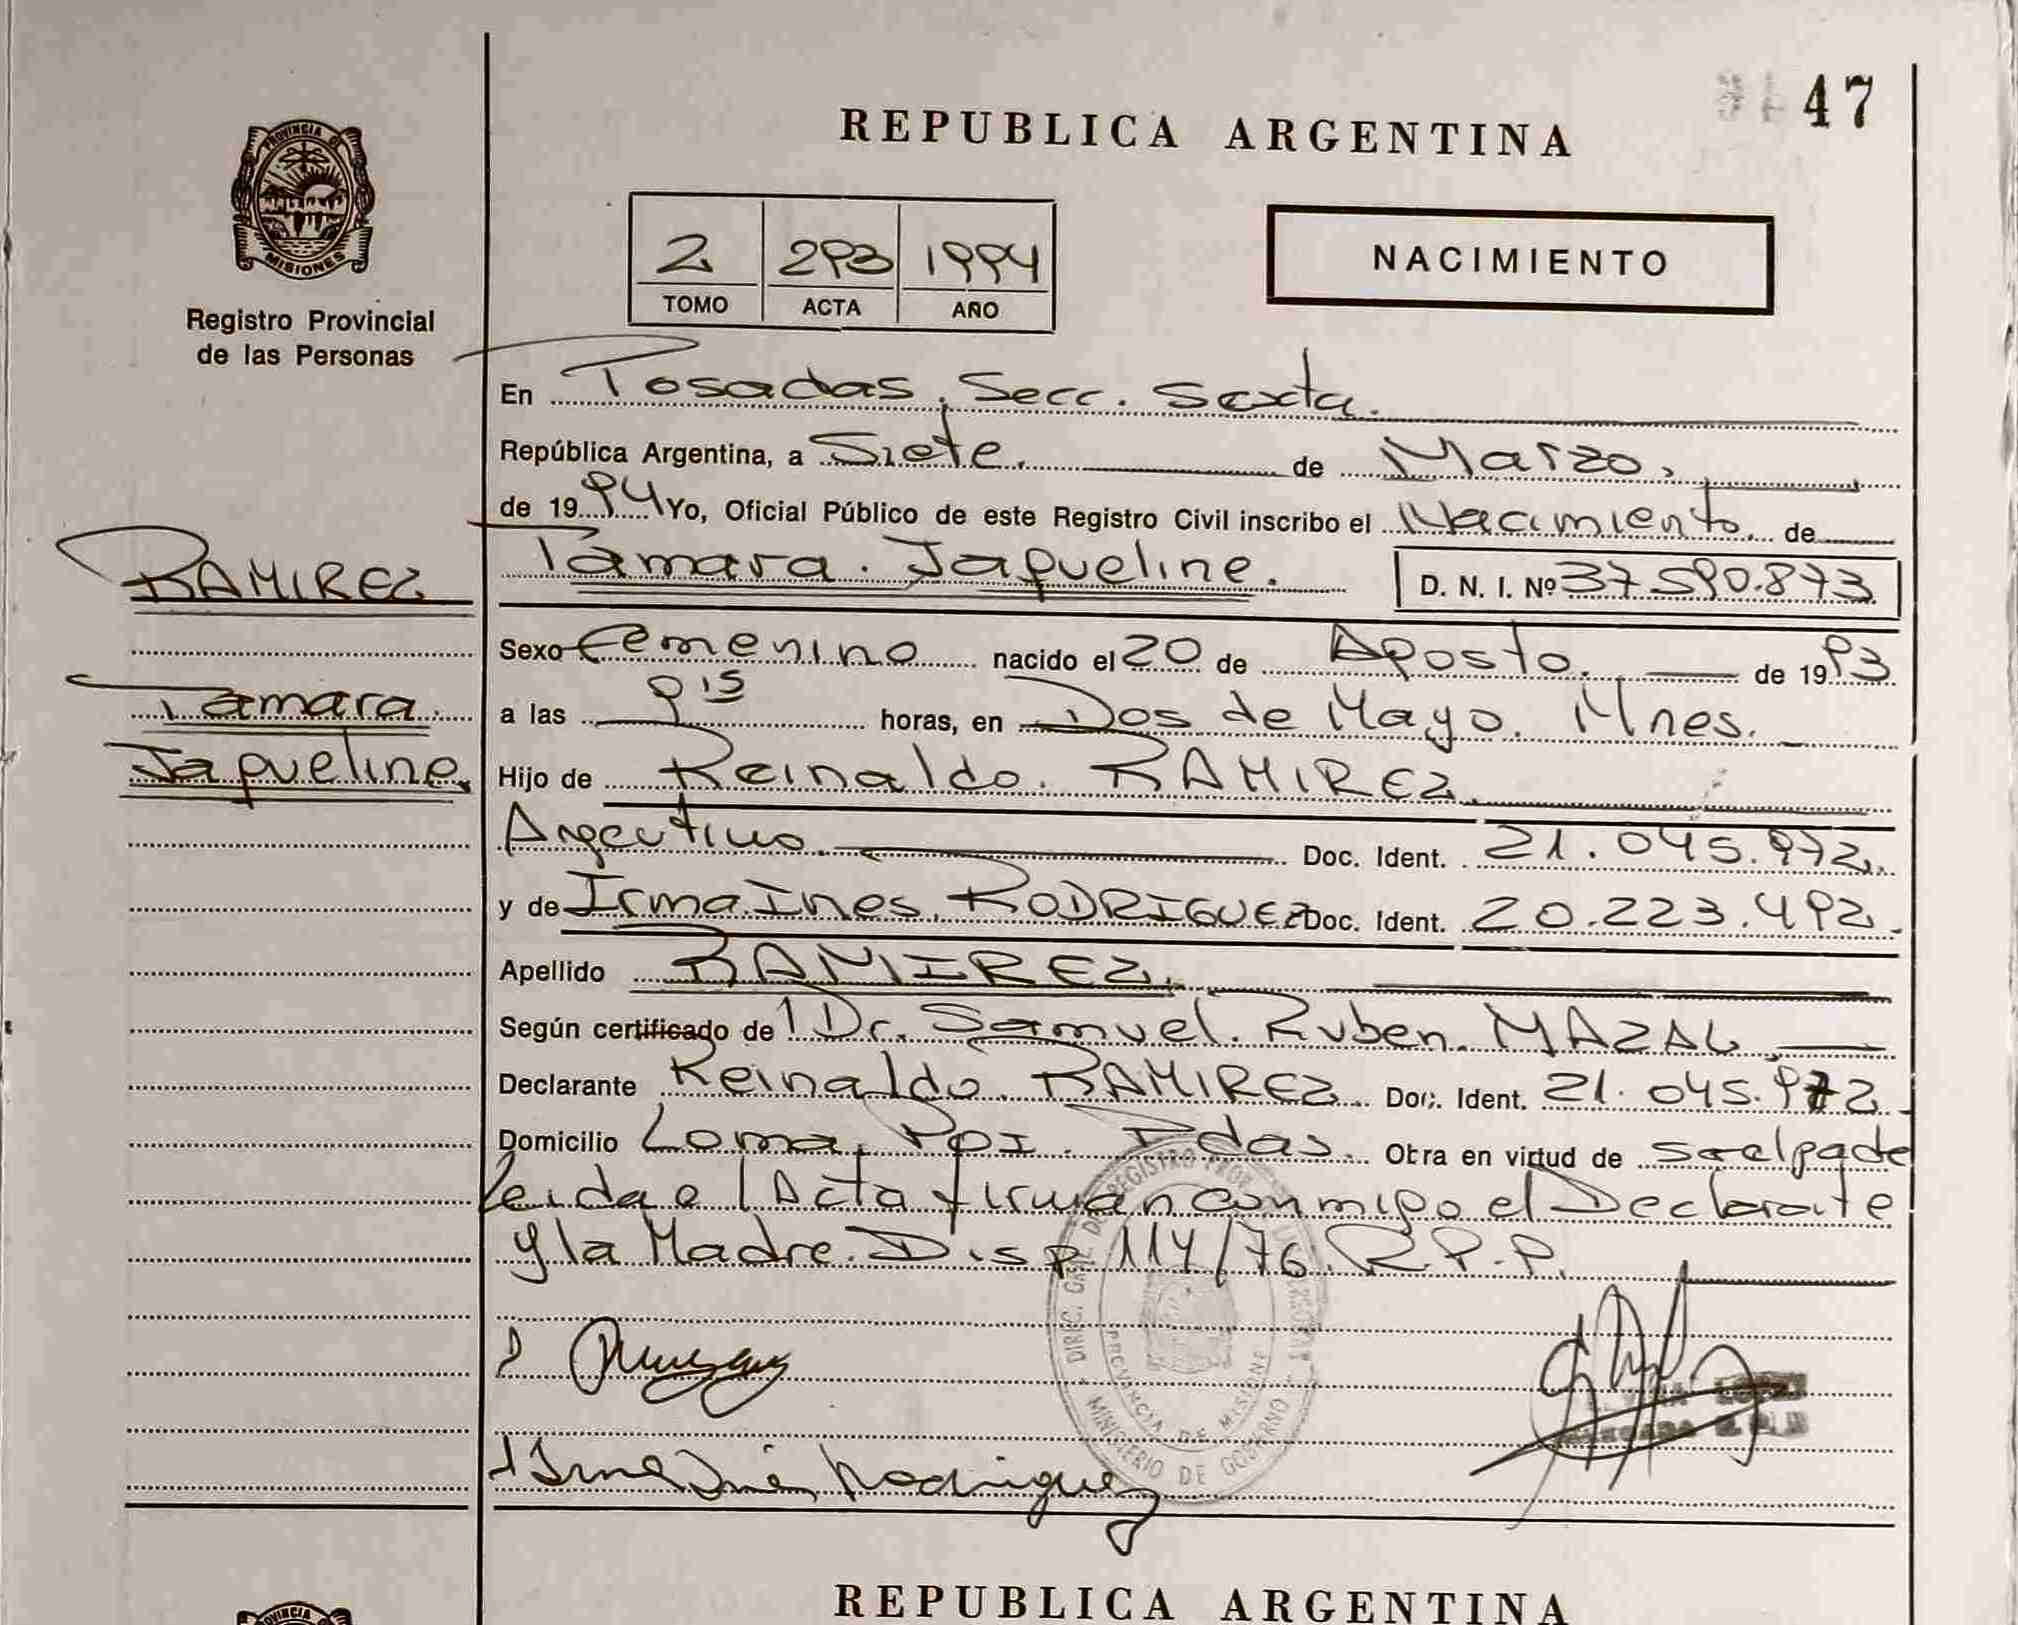 47
REPUBLICA ARGENTINA
PROVINCIA DE
MISIONES
Registro Provincial
de las Personas
2 293 1994
TOMO ACTA AÑO
NACIMIENTO
En Posadas, Secc. Sexta.
República Argentina, a Siete. de Marzo.
de 1994 Yo, Oficial Público de este Registro Civil inscribo el Nacimiento. de
Tamara. Jaqueline. D. N. I. Nº 37.590.873
RAMIREZ
Tamara.
Jaqueline.
Sexo Femenino nacido el 20 de Agosto. de 1993
a las 9 15 horas, en Dos de Mayo. Mnes.
Hijo de Reinaldo. RAMIREZ
Argentino. Doc. Ident. 21.045.972.
y de Irma Ines. RODRIGUEZ Doc. Ident. 20.223.492.
Apellido RAMIREZ.
Según certificado del Dr. Samuel. Ruben. MAZAL.
Declarante Reinaldo RAMIREZ Doc. Ident. 21.045.972
Domicilio Loma Poi. Pdas. Otra en virtud de
Leida el Acta firman conmigo el Declarante
y la Madre. Disp. 114/76. R.P.P.
PROVINCIA DE MISIONE
MINISTERIO DE GOBIERNO
Irma Ines Rodriguez
REPUBLICA ARGENTINA